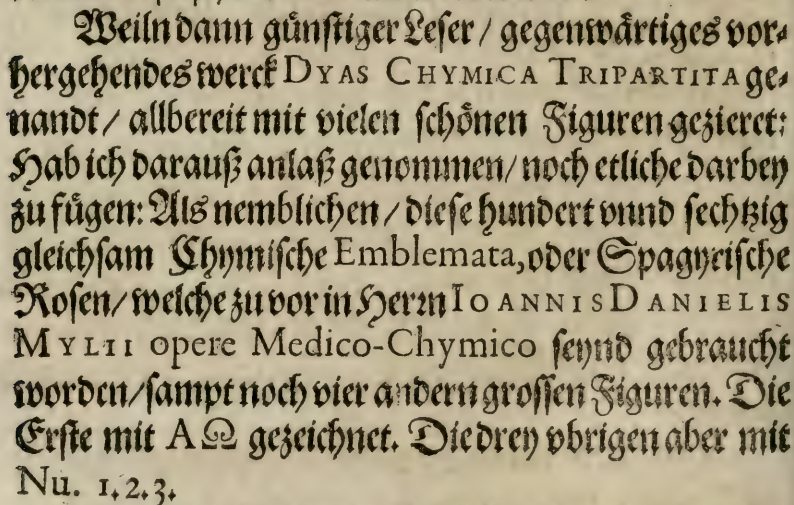 Weiln dann gůnſtiger Leſer / gegenwårtiges vor⸗
hergehendes werck DYAS CHYMICA TRIPARTITA ge⸗
nandt / allbereit mit vielen ſchőnen Figuren gezieret:
Hab ich darauß anlaß genommen / noch etliche darbey
zu fůgen: Als nemblichen / dieſe hundert vnnd ſechtzig
gleichſam Chymiſche Emblemata, oder Spagyriſche
Roſen / welche zuvor in Herrn IOANNIS DANIELIS
MYLII opere Medico-Chymico ſeynd gebraucht
worden / ſampt noch vier andern groſſen Figuren. Die
Erſte mit A Ω gezeichnet. Die drey vbrigen aber mit
Nu. 1. 2. 3.